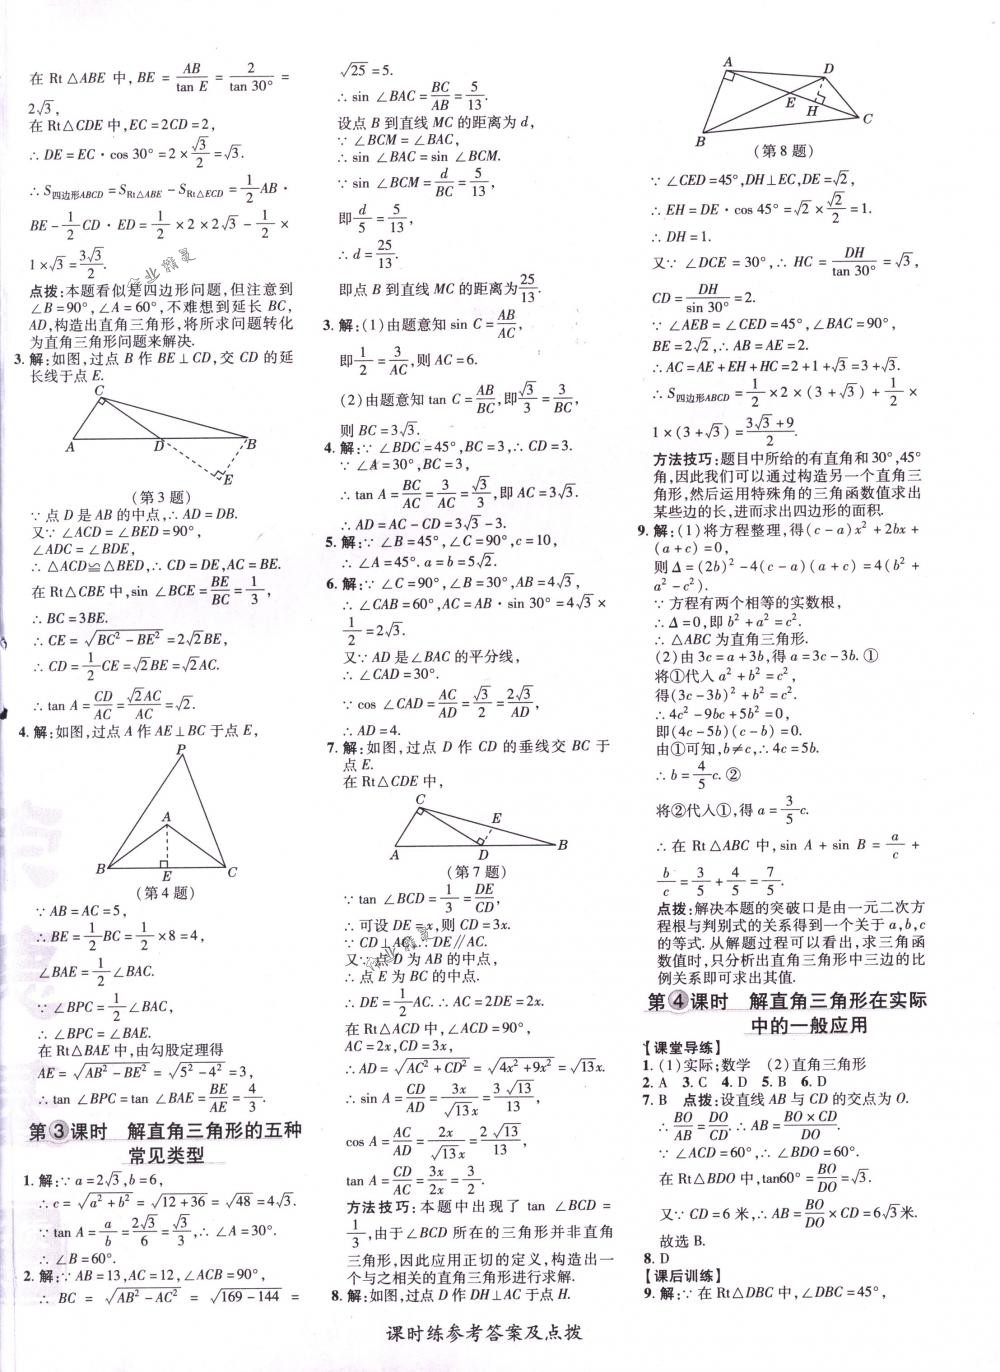 在 Rt△ABE 中,BE = AB/tan E = 2/tan 30° =
2√3,
在 Rt△CDE 中,EC=2CD=2,
∴ DE=EC·cos 30°=2×√3/2=√3.
∴ S四边形ABCD=SRt△ABE-SRt△ECD=1/2AB·
BE-1/2CD·ED=1/2×2×2√3-1/2×
1×√3=3√3/2.
点拨:本题看似是四边形问题,但注意到
∠B=90°,∠A=60°,不难想到延长 BC,
AD,构造出直角三角形,将所求问题转化
为直角三角形问题来解决.
3. 解:如图,过点 B 作 BE⊥CD,交 CD 的延
长线于点 E.
C
A D B
E
(第 3 题)
∵ 点 D 是 AB 的中点,∴ AD=DB.
又∵ ∠ACD=∠BED=90°,
∠ADC=∠BDE,
∴ △ACD≌△BED,∴ CD=DE,AC=BE.
在 Rt△CBE 中,sin ∠BCE=BE/BC=1/3,
∴ BC=3BE.
∴ CE=√(BC²-BE²)=2√2BE,
∴ CD=1/2CE=√2BE=√2AC.
∴ tan A=CD/AC=√2AC/AC=√2.
4. 解:如图,过点 A 作 AE⊥BC 于点 E,
P
A
B E C
(第 4 题)
∵ AB=AC=5,
∴ BE=1/2BC=1/2×8=4,
∠BAE=1/2∠BAC.
∵ ∠BPC=1/2∠BAC,
∴ ∠BPC=∠BAE.
在 Rt△BAE 中,由勾股定理得
AE=√(AB²-BE²)=√(5²-4²)=3,
∴ tan ∠BPC=tan ∠BAE=BE/AE=4/3.
第3课时 解直角三角形的五种
常见类型
1. 解:∵ a=2√3,b=6,
∴ c=√(a²+b²)=√(12+36)=√48=4√3.
∵ tan A=a/b=2√3/6=√3/3,∴ ∠A=30°.
∴ ∠B=60°.
2. 解:∵ AB=13,AC=12,∠ACB=90°,
∴ BC=√(AB²-AC²)=√(169-144)=
√25=5.
∴ sin ∠BAC=BC/AB=5/13.
设点 B 到直线 MC 的距离为 d,
∵ ∠BCM=∠BAC,
∴ sin ∠BAC=sin ∠BCM.
∵ sin ∠BCM=d/BC=5/13,
即d/5=5/13,
∴ d=25/13.
即点 B 到直线 MC 的距离为25/13.
3. 解:(1)由题意知 sin C=AB/AC,
即1/2=3/AC,则 AC=6.
(2)由题意知 tan C=AB/BC,即√3/3=3/BC,
则 BC=3√3.
4. 解:∵ ∠BDC=45°,BC=3,∴ CD=3.
∵ ∠A=30°,BC=3,
∴ tan A=BC/AC=3/AC=√3/3,即 AC=3√3.
∴ AD=AC-CD=3√3-3.
5. 解:∵ ∠B=45°,∠C=90°,c=10,
∴ ∠A=45°.a=b=5√2.
6. 解:∵ ∠C=90°,∠B=30°,AB=4√3,
∴ ∠CAB=60°,AC=AB·sin 30°=4√3×
1/2=2√3.
又∵ AD 是∠BAC 的平分线,
∴ ∠CAD=30°.
∵ cos ∠CAD=AC/AD=√3/2=2√3/AD,
∴ AD=4.
7. 解:如图,过点 D 作 CD 的垂线交 BC 于
点 E.
在 Rt△CDE 中,
C
E
A D B
(第 7 题)
∵ tan ∠BCD=1/3=DE/CD,
∴ 可设 DE=x,则 CD=3x.
∵ CD⊥AC,∴ DE∥AC.
又∵ 点 D 为 AB 的中点,
∴ 点 E 为 BC 的中点.
∴ DE=1/2AC.∴ AC=2DE=2x.
在 Rt△ACD 中,∠ACD=90°,
AC=2x,CD=3x,
∴ AD=√(AC²+CD²)=√(4x²+9x²)=√13x.
∴ sin A=CD/AD=3x/√13x=3√13/13,
cos A=AC/AD=2x/√13x=2√13/13,
tan A=CD/AC=3x/2x=3/2.
方法技巧:本题中出现了 tan ∠BCD=
1/3,由于∠BCD 所在的三角形并非直角
三角形,因此应用正切的定义,构造出一
个与之相关的直角三角形进行求解.
8. 解:如图,过点 D 作 DH⊥AC 于点 H.
A D
E
H
B C
(第 8 题)
∵ ∠CED=45°,DH⊥EC,DE=√2,
∴ EH=DE·cos 45°=√2×√2/2=1.
∴ DH=1.
又∵ ∠DCE=30°,∴ HC=DH/tan 30°=√3,
CD=DH/sin 30°=2.
∵ ∠AEB=∠CED=45°,∠BAC=90°,
BE=2√2,∴ AB=AE=2.
∴ AC=AE+EH+HC=2+1+√3=3+√3.
∴ S四边形ABCD=1/2×2×(3+√3)+1/2×
1×(3+√3)=(3√3+9)/2.
方法技巧:题目中所给的有直角和30°,45°
角,因此我们可以通过构造另一个直角三
角形,然后运用特殊角的三角函数值求出
某些边的长,进而求出四边形的面积.
9. 解:(1)将方程整理,得(c-a)x²+2bx+
(a+c)=0,
则Δ=(2b)²-4(c-a)(a+c)=4(b²+
a²-c²).
∵ 方程有两个相等的实数根,
∴ Δ=0,即 b²+a²=c².
∴ △ABC 为直角三角形.
(2)由 3c=a+3b,得 a=3c-3b.①
将①代入 a²+b²=c²,
得(3c-3b)²+b²=c².
∴ 4c²-9bc+5b²=0,
即(4c-5b)(c-b)=0.
由①可知,b≠c,∴ 4c=5b.
∴ b=4/5c.②
将②代入①,得 a=3/5c.
∴ 在 Rt△ABC 中,sin A+sin B=a/c+
b/c=3/5+4/5=7/5.
点拨:解决本题的突破口是由一元二次方
程根与判别式的关系得到一个关于 a,b,c
的等式. 从解题过程可以看出,求三角函
数值时,只分析出直角三角形中三边的比
例关系即可求出其值.
第4课时 解直角三角形在实际
中的一般应用
【课堂导练】
1. (1)实际;数学 (2)直角三角形
2. A 3. C 4. D 5. B 6. D
7. B 点拨:设直线 AB 与 CD 的交点为 O.
∴ BO/AB=DO/CD.∴ AB=BO×CD/DO.
∵ ∠ACD=60°,∴ ∠BDO=60°.
在 Rt△BDO 中,tan60°=BO/DO=√3.
又∵ CD=6 米,∴ AB=BO/DO×CD=6√3米.
故选 B.
8. D
【课后训练】
9. 解:∵ 在 Rt△DBC 中,∠DBC=45°,
课时练参考答案及点拨